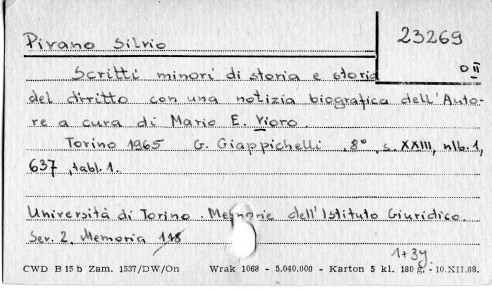 23269
D II
Pivano Silvio
Scritti minori di storia e storia
del diritto con una notizia biografica dell'Auto-
re a cura di Mario E. Viora.
Torino 1965 G. Giappichelli, 8°, s. XXIII, nlb. 1,
637, tabl. 1.
Università di Torino. Memorie dell'Istituto Giuridico.
Ser. 2, Memoria 118
1+3y.
CWD B 15 b Zam. 1537/DW/On Wrak 1068 - 5.040.000 - Karton 5 kl. 180 g. - 10.XII.68.